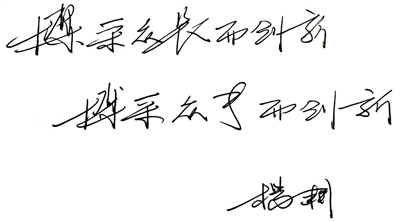 博采众长而创新
博采众才而创新